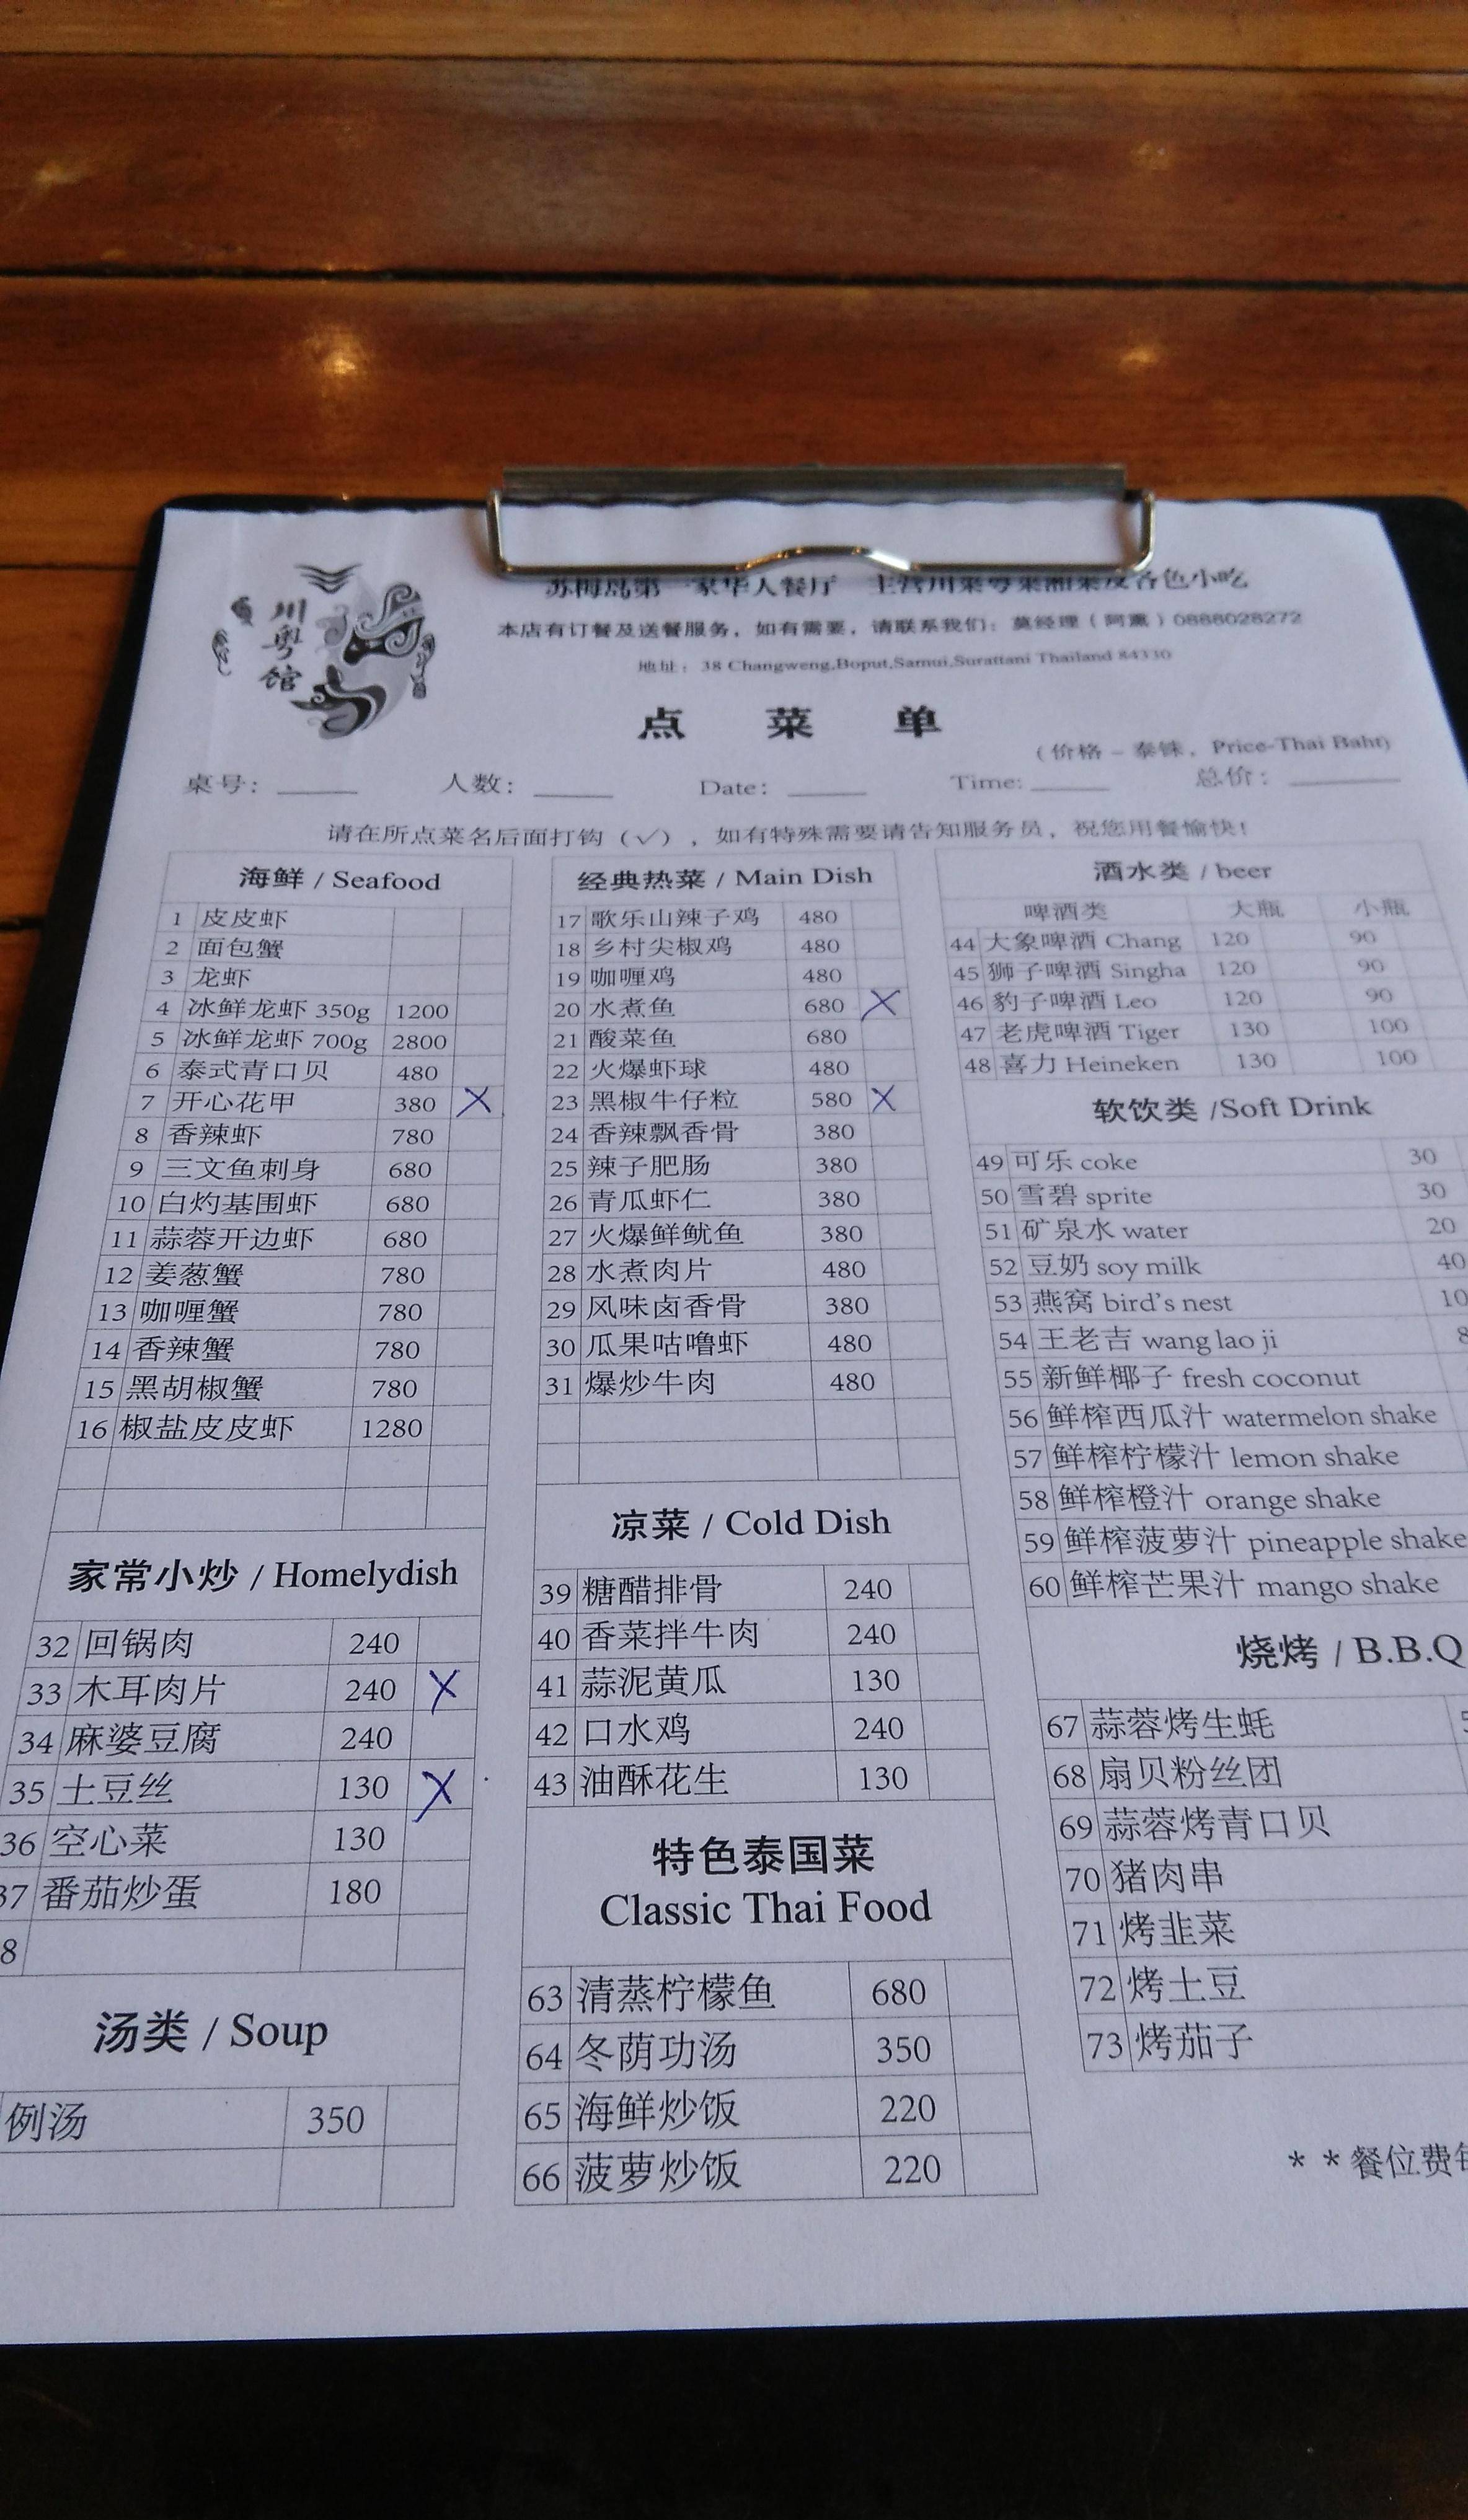 川粤馆
苏梅岛第一家华人餐厅 主营川菜粤菜湘菜及各色小吃
本店有订餐及送餐服务，如有需要，请联系我们：莫经理（阿熏）0888028272
地址：38 Changweng,Boput,Samui,Surattani Thailand 84330
点 菜 单
（价格 – 泰铢，Price-Thai Baht）
桌号：____ 人数：____ Date：____ Time:____ 总价：____
请在所点菜名后面打钩（✓），如有特殊需要请告知服务员，祝您用餐愉快！
海鲜 / Seafood
1 皮皮虾
2 面包蟹
3 龙虾
4 冰鲜龙虾 350g 1200
5 冰鲜龙虾 700g 2800
6 泰式青口贝 480
7 开心花甲 380 X
8 香辣虾 780
9 三文鱼刺身 680
10 白灼基围虾 680
11 蒜蓉开边虾 680
12 姜葱蟹 780
13 咖喱蟹 780
14 香辣蟹 780
15 黑胡椒蟹 780
16 椒盐皮皮虾 1280
家常小炒 / Homelydish
32 回锅肉 240
33 木耳肉片 240 X
34 麻婆豆腐 240
35 土豆丝 130 X
36 空心菜 130
37 番茄炒蛋 180
8
汤类 / Soup
例汤 350
经典热菜 / Main Dish
17 歌乐山辣子鸡 480
18 乡村尖椒鸡 480
19 咖喱鸡 480
20 水煮鱼 680 X
21 酸菜鱼 680
22 火爆虾球 480
23 黑椒牛仔粒 580 X
24 香辣飘香骨 380
25 辣子肥肠 380
26 青瓜虾仁 380
27 火爆鲜鱿鱼 380
28 水煮肉片 480
29 风味卤香骨 380
30 瓜果咕噜虾 480
31 爆炒牛肉 480
凉菜 / Cold Dish
39 糖醋排骨 240
40 香菜拌牛肉 240
41 蒜泥黄瓜 130
42 口水鸡 240
43 油酥花生 130
特色泰国菜
Classic Thai Food
63 清蒸柠檬鱼 680
64 冬荫功汤 350
65 海鲜炒饭 220
66 菠萝炒饭 220
酒水类 / beer
啤酒类 大瓶 小瓶
44 大象啤酒 Chang 120 90
45 狮子啤酒 Singha 120 90
46 豹子啤酒 Leo 120 90
47 老虎啤酒 Tiger 130 100
48 喜力 Heineken 130 100
软饮类 /Soft Drink
49 可乐 coke 30
50 雪碧 sprite 30
51 矿泉水 water 20
52 豆奶 soy milk 40
53 燕窝 bird's nest 10
54 王老吉 wang lao ji 8
55 新鲜椰子 fresh coconut
56 鲜榨西瓜汁 watermelon shake
57 鲜榨柠檬汁 lemon shake
58 鲜榨橙汁 orange shake
59 鲜榨菠萝汁 pineapple shake
60 鲜榨芒果汁 mango shake
烧烤 / B.B.Q
67 蒜蓉烤生蚝
68 扇贝粉丝团
69 蒜蓉烤青口贝
70 猪肉串
71 烤韭菜
72 烤土豆
73 烤茄子
* * 餐位费